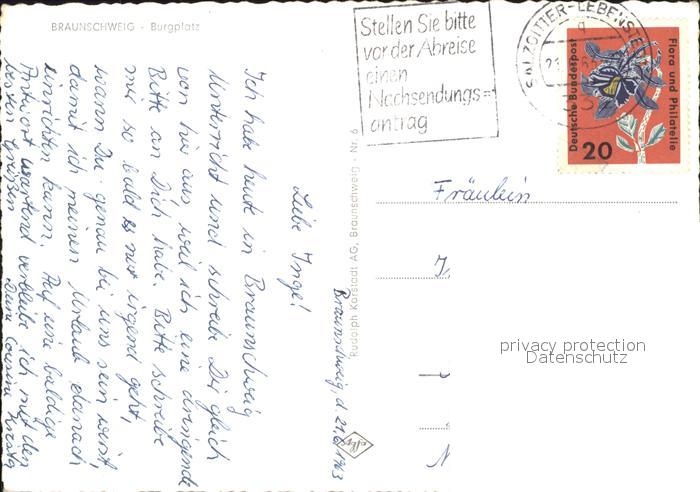 BRAUNSCHWEIG - Burgplatz
Braunschweig, d. 21.6.1963
Liebe Inge!
Ich habe heute in Braunschweig
Unterricht und schreibe Dir gleich
von hier aus, weil ich eine dringende
Bitte an Dich habe. Bitte schreibe
mir so bald es nur irgend geht,
wann Du genau bei uns sein wirst,
damit ich meinen Urlaub danach
einrichten kann. Auf eine baldige
Antwort wartend verbleibe ich mit den
besten Grüßen Deine Cousine
Rudolph Karstadt AG, Braunschweig - Nr. 6
Stellen Sie bitte
vor der Abreise
einen
Nachsendungs=
antrag
SALZGITTER-LEBENSTEDT
Deutsche Bundespost
Flora und Philatelie
20
Fräulein
J.
privacy protection
Datenschutz